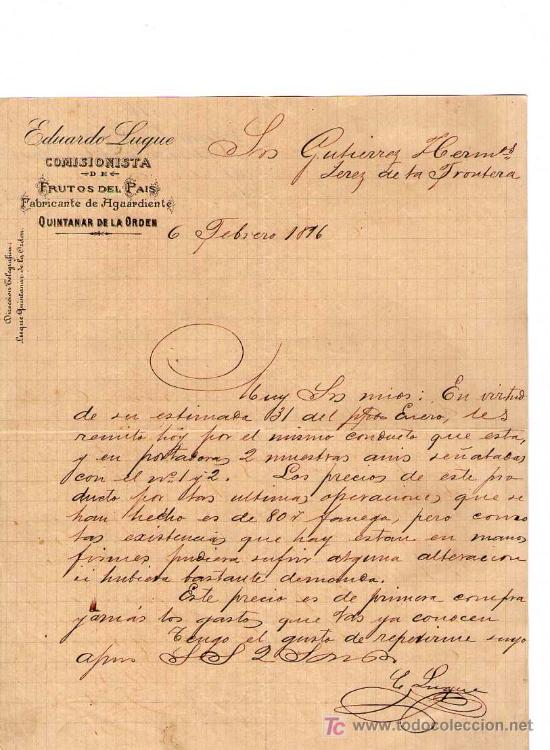 Eduardo Luque
COMISIONISTA
DE
FRUTOS DEL PAIS
Fabricante de Aguardiente
QUINTANAR DE LA ORDEN
Direccion Telegráfica:
Luque Quintanar de la Orden.
Sres Gutierrez Hermos
Jerez de la Frontera
6 Febrero 1896
Muy Srs mios: En virtud
de su estimada 31 del ppdo Enero, les
remito hoy por el mismo conducto que esta,
y en 2 muestras anis señaladas
con el nº 1 y 2. Los precios de este pro
ducto por las ultimas operaciones que se
han hecho es de 80 r fanega, pero como
las existencias que hay estan en manos
firmes pudiera sufrir alguna alteracion
si hubiera bastante demanda.
Este precio es de primera compra
y amas los gastos que Vds ya conocen
Tengo el gusto de repetirme suyo
S S Q S M B
E. Luque
TC www.todocoleccion.net